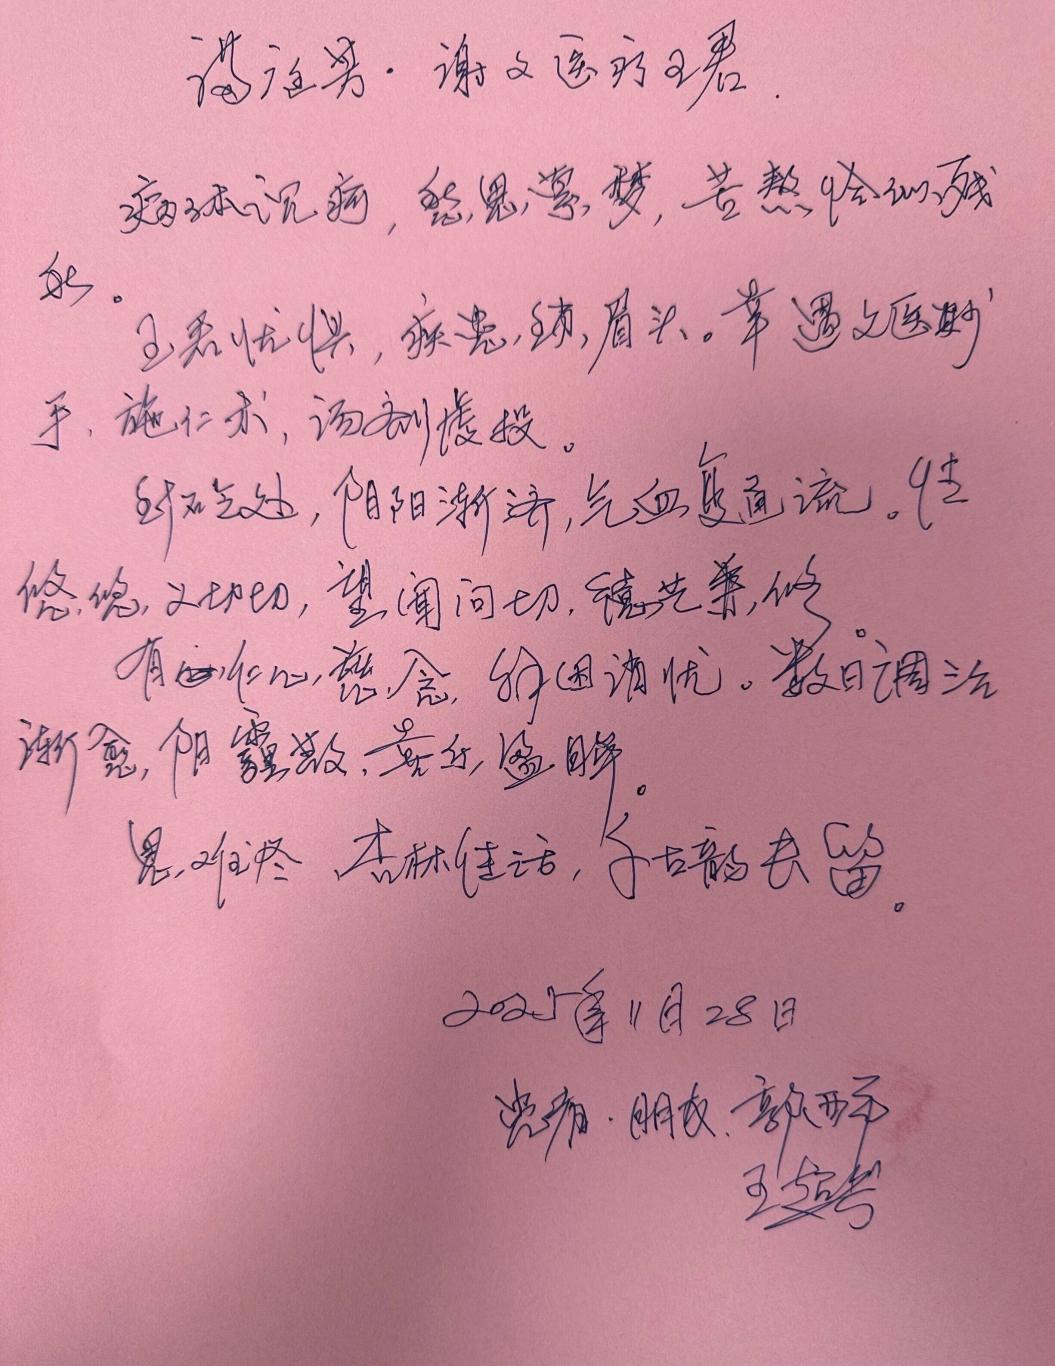 满庭芳·谢文医疗王君.
病体沉疴,愁思萦梦,苦熬恰似残
秋。
王君忧惧,疾患锁眉头。幸遇文医妙
手、施仁术,汤剂慢投。
针石定处,阴阳渐济,气血复通流。情
悠悠,又切切,望闻问切,德艺兼修。
有仁心慈念,解困消忧。数日调治
渐愈,阴霾散、喜乐盈眸。
恩难尽、杏林佳话,千古韵长留。
2025年11月28日
患者·朋友.郭西平
王